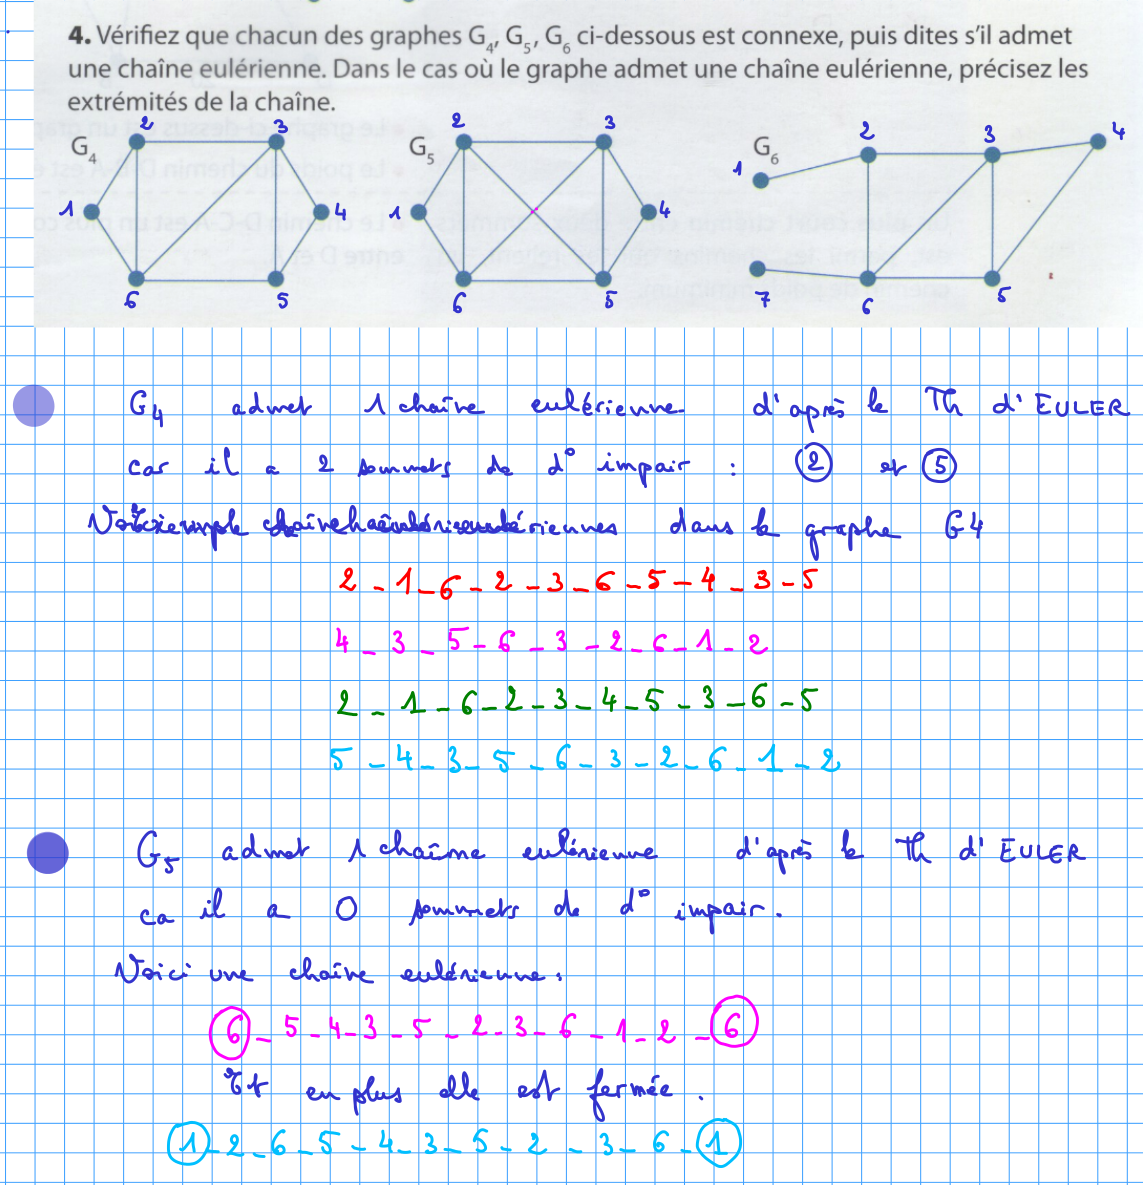 4. Vérifiez que chacun des graphes G4, G5, G6 ci-dessous est connexe, puis dites s'il admet
une chaîne eulérienne. Dans le cas où le graphe admet une chaîne eulérienne, précisez les
extrémités de la chaîne.
G4 1 2 3 4 5 6
G5 1 2 3 4 5 6
G6 1 2 3 4 5 6 7
G4 admet 1 chaîne eulérienne d'après le Th d'EULER
car il a 2 sommets de d° impair : 2 et 5
dans le graphe G4
2 - 1 - 6 - 2 - 3 - 6 - 5 - 4 - 3 - 5
4 - 3 - 5 - 6 - 3 - 2 - 6 - 1 - 2
2 - 1 - 6 - 2 - 3 - 4 - 5 - 3 - 6 - 5
5 - 4 - 3 - 5 - 6 - 3 - 2 - 6 - 1 - 2
G5 admet 1 chaîne eulérienne d'après le Th d'EULER
ca il a 0 sommets de d° impair.
Voici une chaîne eulérienne :
6 - 5 - 4 - 3 - 5 - 2 - 3 - 6 - 1 - 2 - 6
Et en plus elle est fermée.
1 - 2 - 6 - 5 - 4 - 3 - 5 - 2 - 3 - 6 - 1